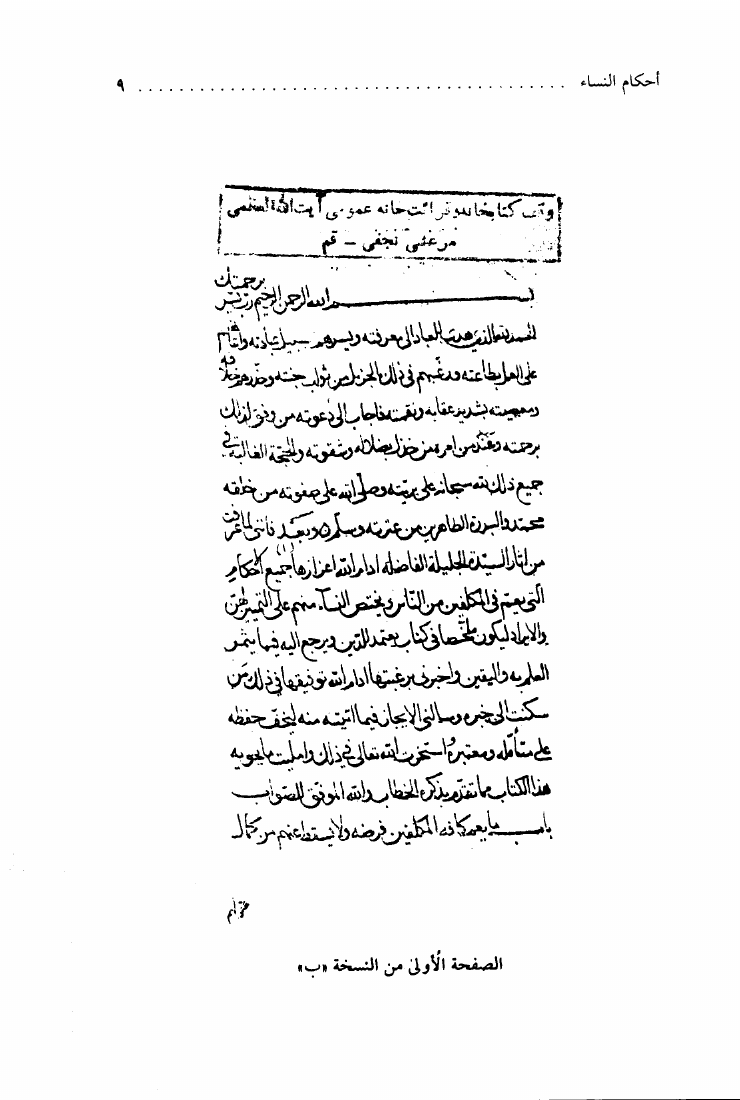 أحكام النساء ........................................ ٩
وقف كتابخانه وقرائت خانه عمومى آيت الله العظمى
مرعشى نجفى - قم
برحمتك
بسم الله الرحمن الرحيم رب يسر
الحمد لله الذى هدى العباد الى معرفته ويسرهم سبيل عبادته
على العمل بطاعته ورغبهم فى ذلك الجزيل من ثواب جنته وحذرهم خلافه
ومعصيته بشديد عقابه ونقمته فاجاب الى دعوته من وفق لذلك
برحمته وعند من امره من خذل بضلاله وشقوته والحجة الغالبة فى
جميع ذلك لله سبحانه على بريته وصلى الله على صفوته من خلقه
محمد والبررة الطاهرين من عترته وسلم وبعد فاننى لما عرفت
من اثار السيدة الجليلة الفاضله ادام الله اعزازها جميع الاحكام
التى يعم فى المكلفين من الناس ويختص النسآء منهم على التميز لهن
والايراد ليكون ملخصا فى كتاب يعتمد للدين ويرجع اليه فيما يثمر
العلم به واليقين واخبرنى برغبتها ادام الله توفيقها فى ذلك من
سكنت الى خبره وسالنى الايجاز فيما اثبته منه ليخف حفظه
على متأمله ومعتبره واستخرت الله تعالى فى ذلك وامليت ما يحويه
هذا الكتاب مما تقدم بذكره الخطاب والله الموفق للصواب
باب ما يعم كافه المكلفين فرضه ولا يسقط عنهم من كمال
الصفحة الأولى من النسخة «ب»